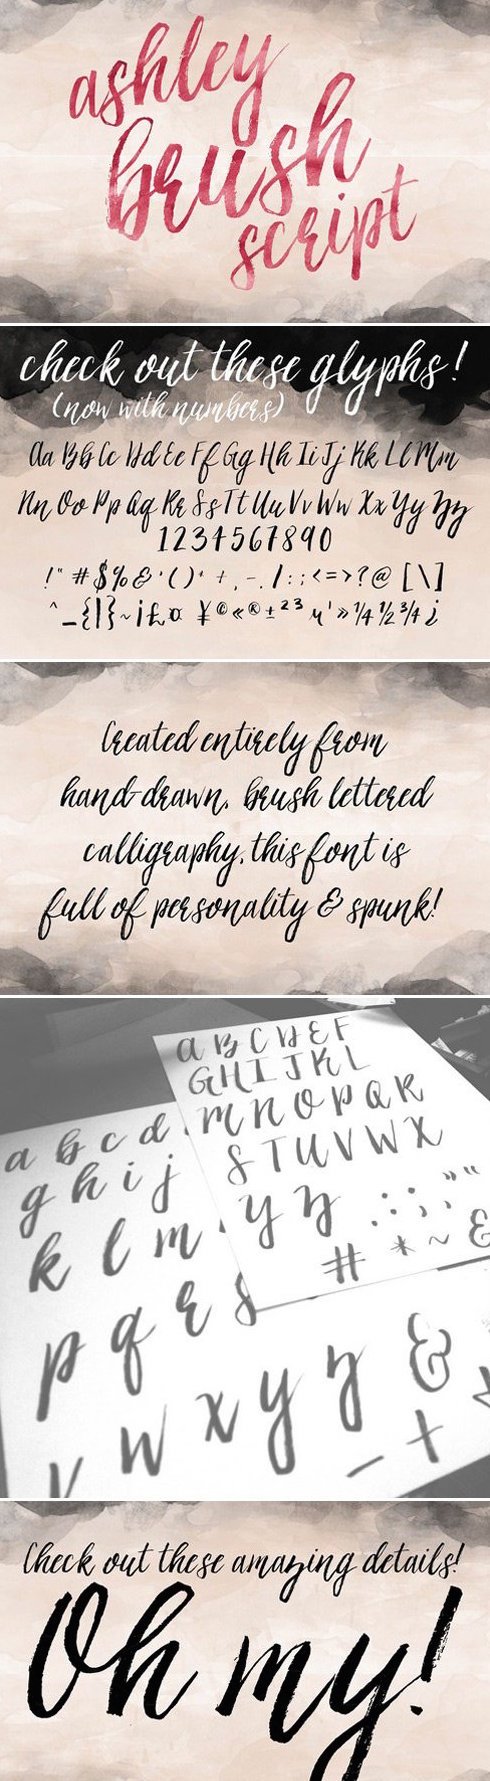 ashley
brush
script
check out these glyphs!
(now with numbers)
Aa Bb Cc Dd Ee Ff Gg Hh Ii Jj Kk Ll Mm
Nn Oo Pp Qq Rr Ss Tt Uu Vv Ww Xx Yy Zz
1234567890
!"#$%&'()*+,-./:;<=>?@[\]
^_{|}~¡£¤¥©«®±²³µ'»¼½¾¿
Created entirely from
hand-drawn, brush lettered
calligraphy, this font is
full of personality & spunk!
A B C D E F
G H I J K L
M N O P Q R
S T U V W X
Y Z . : , ; " "
# * ~ &
a b c d
g h i j
k l m
p q r s
v w x y z &
_ +
Check out these amazing details!
Oh my!